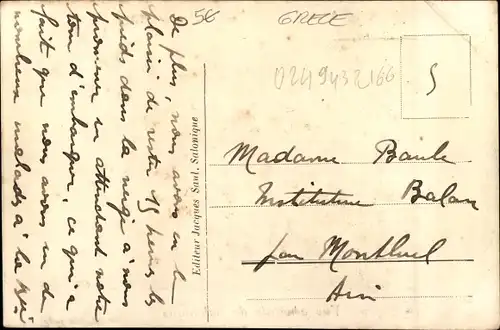 De plus, nous avons eu le
plaisir de rester 15 heures les
pieds dans la neige à nous
promener en attendant notre
tour d'embarquer, ce qui a
fait que nous avons eu de
nombreux malades à la
Editeur Jacques Saul, Salonique
5€
GRECE
0249432166
S
Madame Baule
Institutrice Balan
par Montluel
Ain